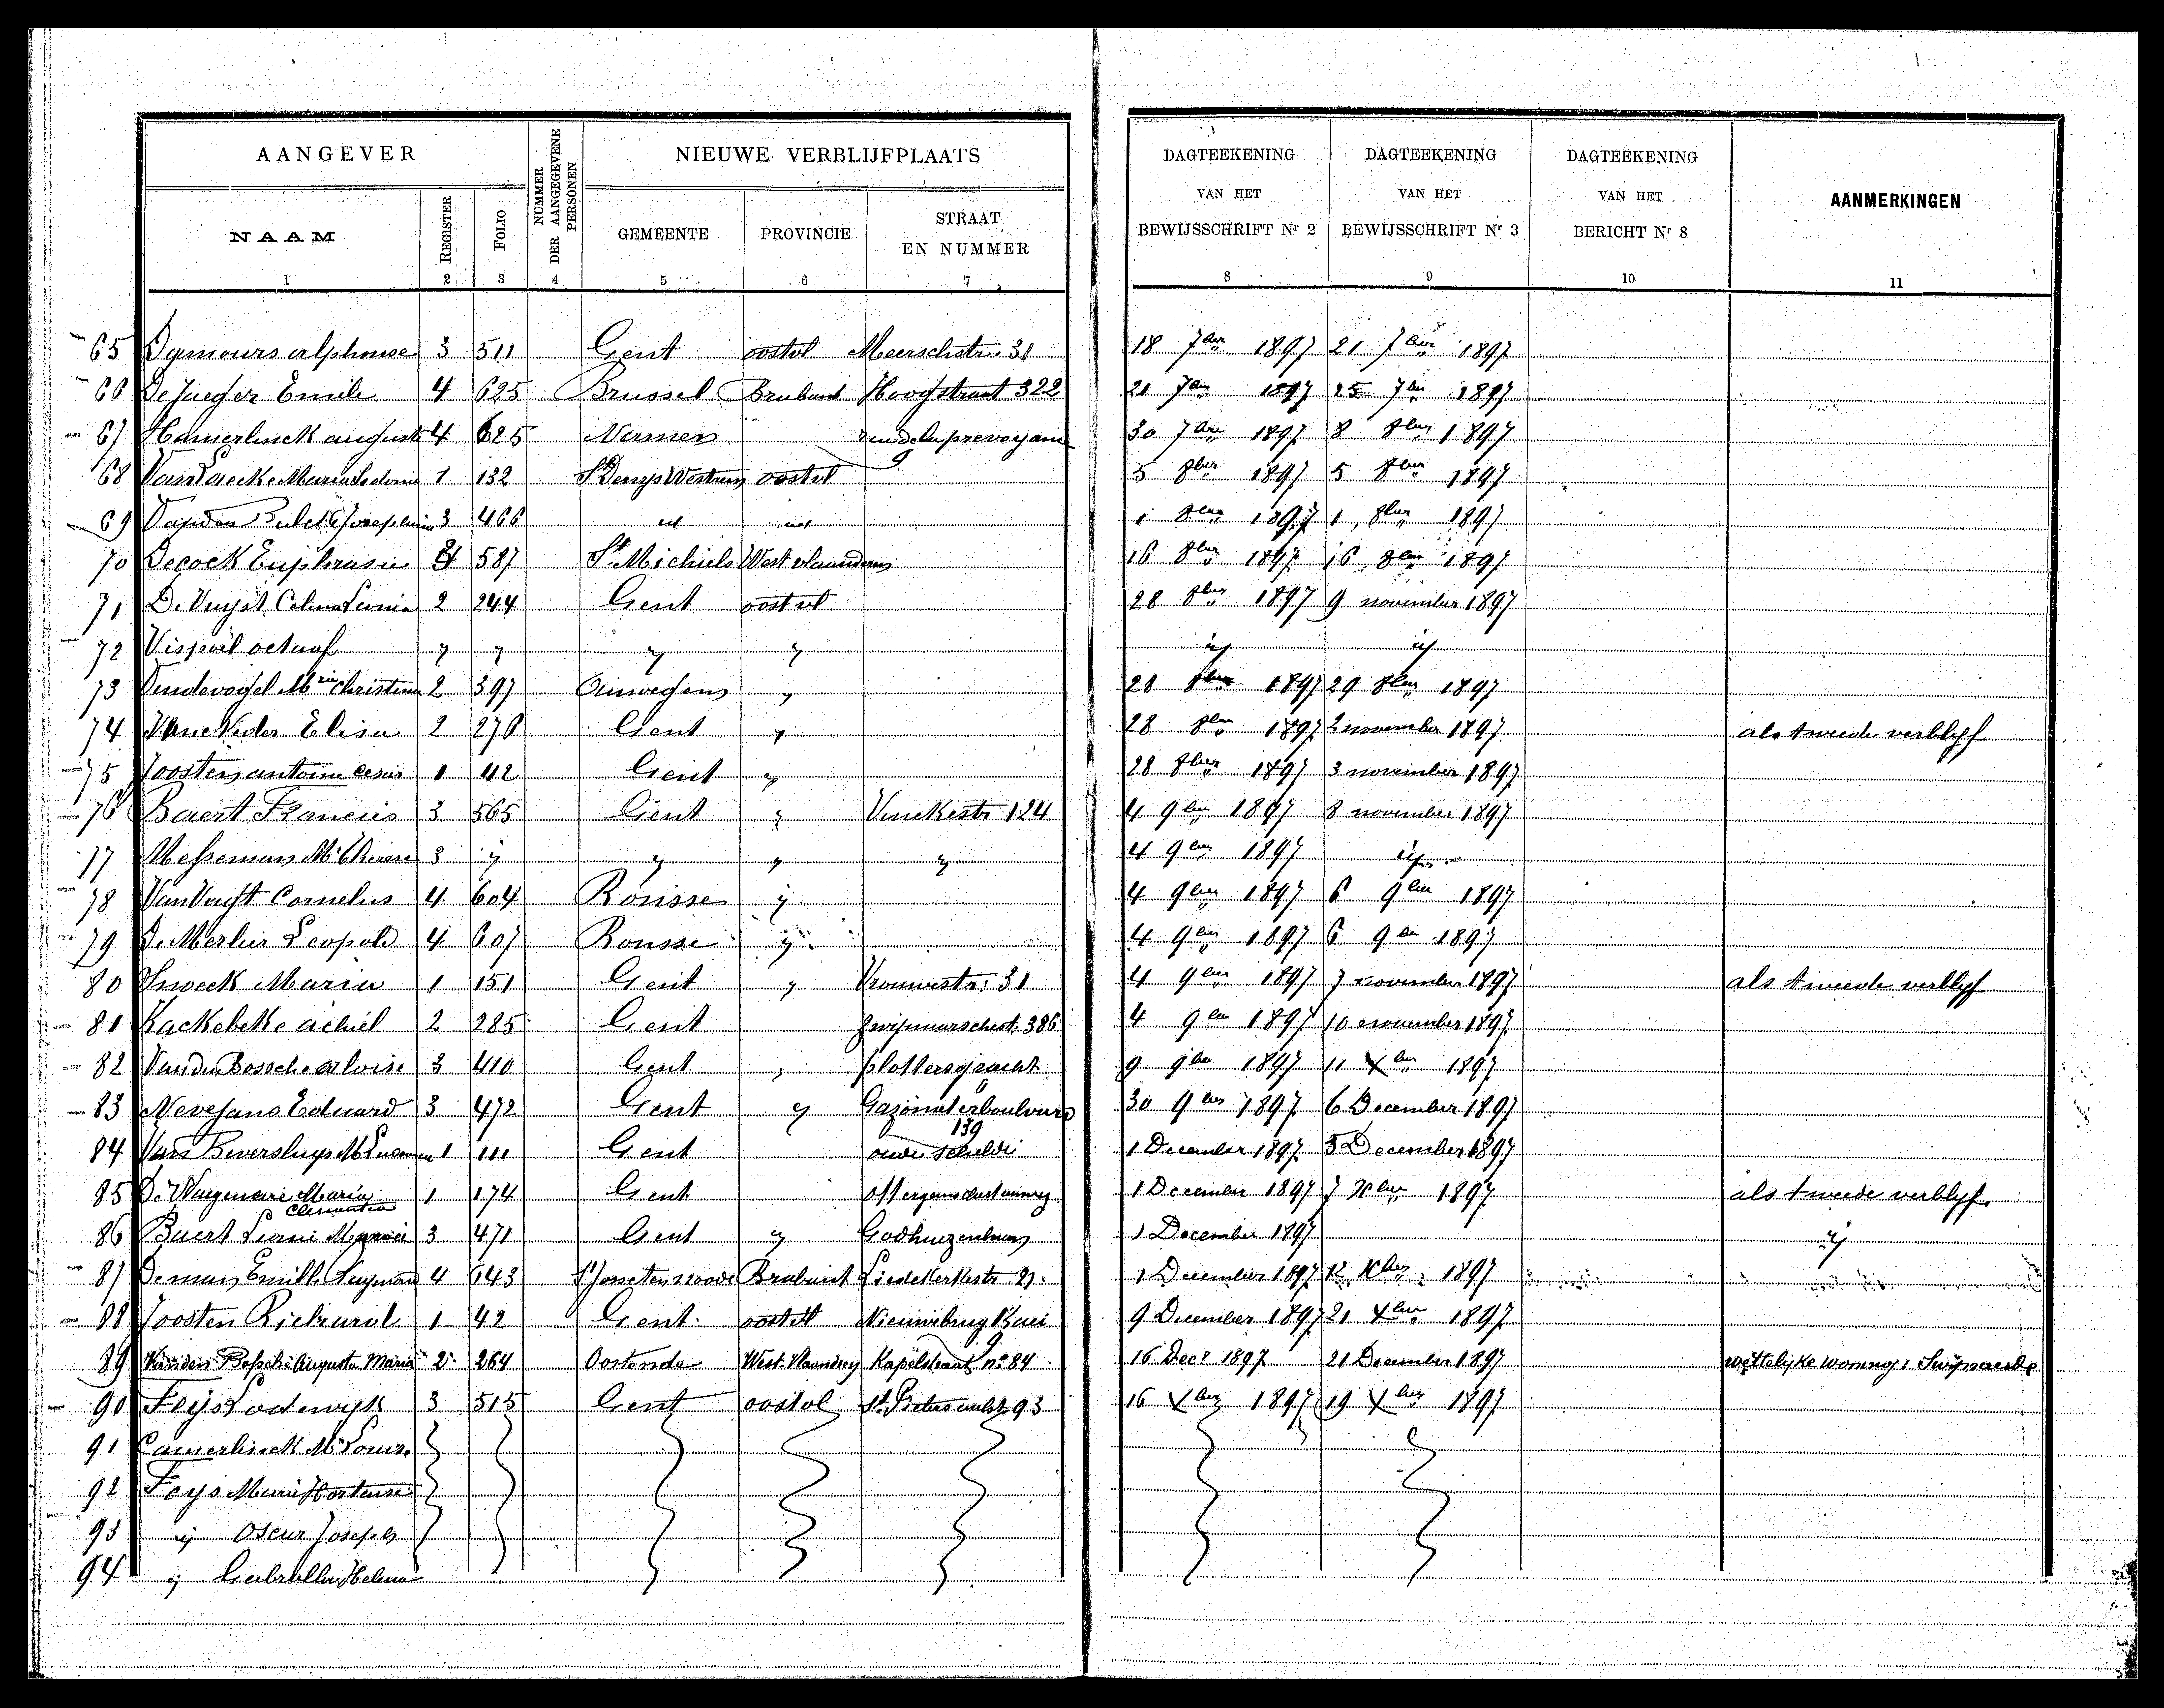 AANGEVER NUMMER DER AANGEGEVENE PERSONEN NIEUWE VERBLIJFPLAATS DAGTEEKENING VAN HET BEWIJSSCHRIFT Nr 2 DAGTEEKENING VAN HET BEWIJSSCHRIFT Nr 3 DAGTEEKENING VAN HET BERICHT Nr 8 AANMERKINGEN
NAAM REGISTER FOLIO GEMEENTE PROVINCIE STRAAT EN NUMMER
1 2 3 4 5 6 7 8 9 10 11
65 Dymours alphonse 3 511 Gent oostvl Meerschstr. 31 18 7ber 1897 21 7ber 1897
66 De Jaeger Emile 4 625 Brussel Brabant Hoogstraat 322 21 7ber 1897 25 7ber 1897
67 Hamerlinck auguste 4 625 Namen 9 30 7bre 1897 8 8ber 1897
68 Maria 1 132 St Denys Westrem oostvl 5 8ber 1897 5 8ber 1897
69 Josephine 3 466 id id 1 8ber 1897 1 8ber 1897
70 Decock Euphrasie 587 St Michiels West vlaanderen 16 8ber 1897 16 8ber 1897
71 De Vuyst Celina Leonia 2 244 Gent oostvl 28 8ber 1897 9 november 1897
72 Vispoel octaaf y y y y ij ij
73 Vindevogel Mrie Christina 2 397 y 28 8ber 1897 29 8ber 1897
74 Elisa 2 270 Gent y 28 8ber 1897 2 november 1897 als tweede verblyf
75 Joosten antoine Cesar 1 42 Gent y 28 8ber 1897 3 november 1897
76 Baert Francies 3 565 Gent y Vinckestr 124 4 9ber 1897 8 november 1897
77 Messeman Mie Therese 3 y y y y 4 9ber 1897 ij
78 Cornelus 4 604 Ronsse y 4 9ber 1897 6 9ber 1897
79 De Merlier Leopold 4 607 Ronsse y 4 9ber 1897 6 9ber 1897
80 Snoeck Maria 1 151 Gent y Vrouwestr. 31 4 9ber 1897 7 november 1897 als tweede verblyf
81 Kackebeke achiel 2 285 Gent Zwijnaarschestr. 386 4 9ber 1897 10 november 1897
82 Vanden Bossche aloise 3 410 Gent y plottersgracht 9 9ber 1897 11 Xber 1897
83 Nevejans Eduard 3 472 Gent y Gazometerboulvard 139 30 9ber 1897 6 December 1897
84 Van Beversluys 1 111 Gent oude schelde 1 December 1897 5 December 1897
85 De Waegenaere Maria Clementia 1 174 Gent 1 December 1897 7 Xber 1897 als tweede verblyf.
86 Baert Leonie Maria 3 471 Gent y Godhuizenlaan 1 December 1897 ij
87 Deman Emille 4 643 St Josseten noode Brabant Liedekerkestr 21. 1 December 1897 12 Xber 1897
88 Joosten Richard 1 42 Gent oostvl Nieuwebrug Kaei 9 9 December 1897 21 Xber 1897
89 Vanden Bossche Augusta Maria 2 264 Oostende West-Vlaanderen Kapelstraat no 84 16 Decr 1897 21 December 1897 wettelijke woning: Swijnaerde
90 Feijs Lodewyk 3 515 Gent oostvl St Pietersaalst. 93 16 Xber 1897 19 Xber 1897
91 Camerlinck Mie Louise
92 Feys Marie Hortense
93 ij Oscar Joseph
94 ij Gabrielle Helena